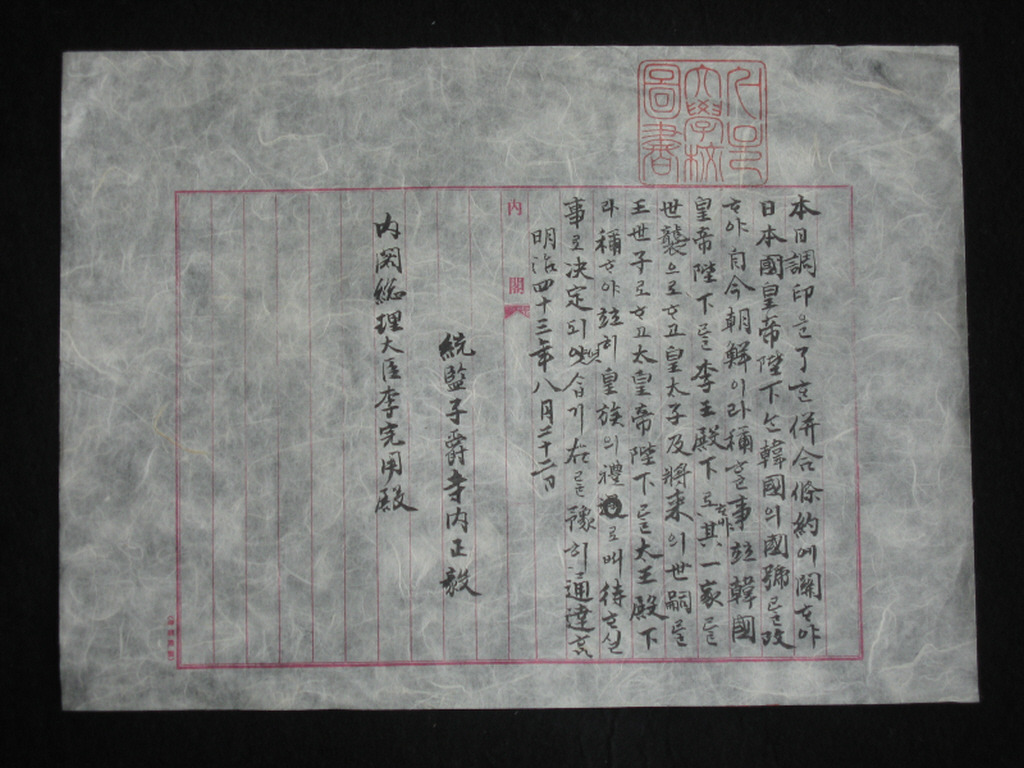 本日調印을了ᄒᆞᆫ併合條約에關ᄒᆞ야
日本國皇帝陛下ᄂᆞᆫ韓國의國號를改
ᄒᆞ야自今朝鮮이라稱ᄒᆞᆯ事並韓國
皇帝陛下를李王殿下로ᄒᆞ야其一家를
世襲으로ᄒᆞ고皇太子及將來의世嗣를
王世子로ᄒᆞ고太皇帝陛下를太王殿下
라稱ᄒᆞ야並히皇族의禮로ᄡᅥ待ᄒᆞ실
事로決定되얏合기右를豫히通達
明治四十三年八月二十二日
統監子爵寺内正毅
内閣総理大臣李完用殿
內閣
大學校
圖書